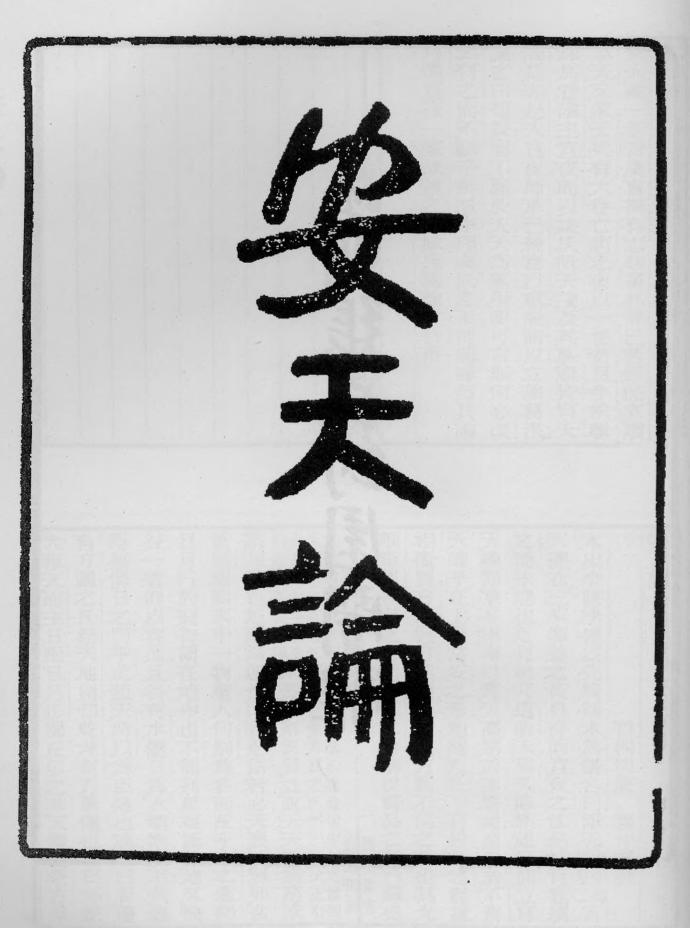 安天論